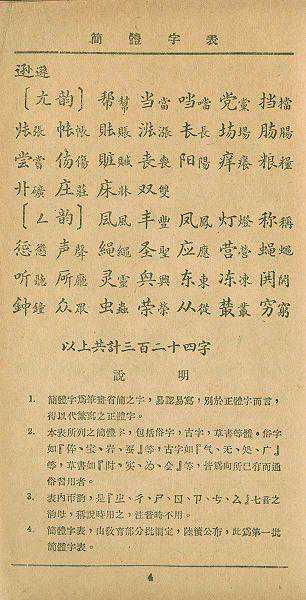 簡體字表
逊遜
〔尢韵〕帮幫 当當 哨噹 党黨 挡擋
张張 帐帳 账賬 涨漲 长長 场場 肠腸
尝嘗 伤傷 赃贓 丧喪 阳陽 痒癢 粮糧
矿礦 庄莊 床牀 双雙
〔ㄥ韵〕风風 丰豐 凤鳳 灯燈 称稱
惩懲 声聲 绳繩 圣聖 应應 营營 蝇蠅
听聽 厅廳 灵靈 兴興 东東 冻凍
鈡鐘 众眾 虫蟲 荣榮 从從 丛叢 穷窮
以上共計三百二十四字
說明
1. 簡體字爲筆畫省簡之字，易認易寫，別於正體字而言，
得以代繁寫之正體字。
2. 本表所列之簡體字，包括俗字，古字，草書等體。俗字
如『体、宝、岩、蚕』等，古字如『气、无、处、广』
等，草書如『时、实、为、会』等，皆爲向所已有而通
俗習用者。
3. 表內市韵，是『ㄓ、ㄔ、ㄕ、ㄖ、ㄗ、ㄘ、ㄙ』七音之
韵母，稱說時用之，注音時不用。
4. 簡體字表，由教育部分批制定，陸續公布，此爲第一批
簡體字表。
4